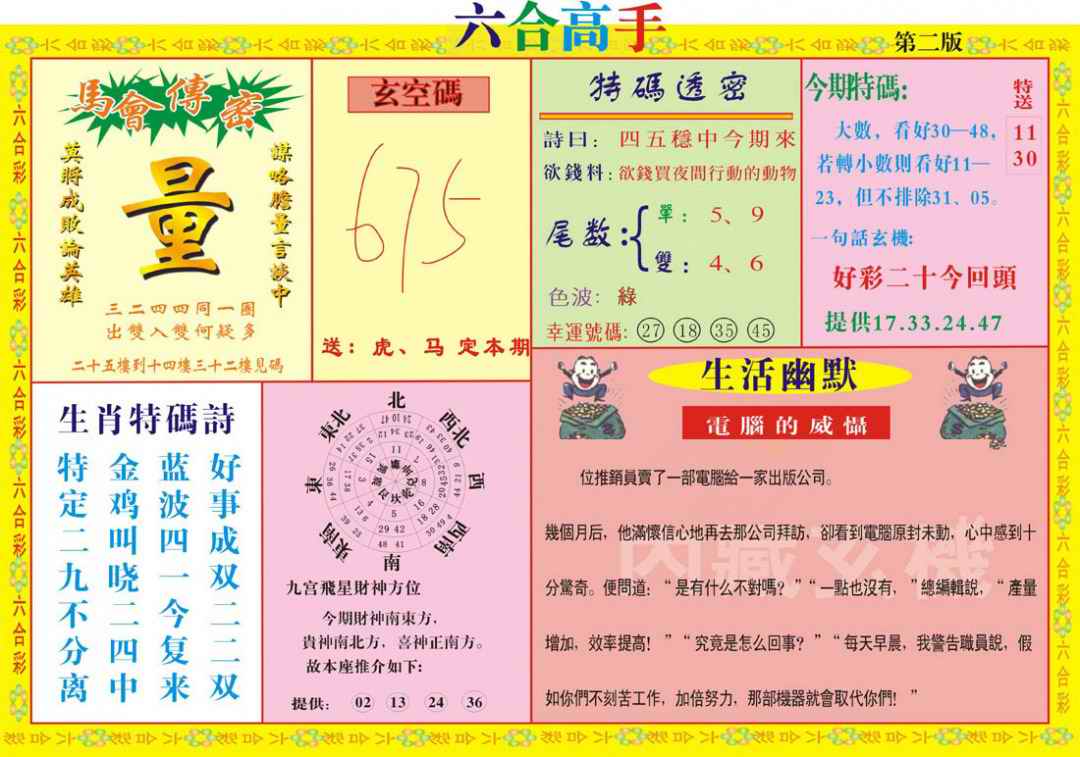 六合高手
第二版
馬會傳密
謀略膽量言談中
量
莫將成敗論英雄
三二四四同一團
出雙入雙何疑多
二十五樓到十四樓三十二樓見碼
玄空碼
675
送：虎、马 定本期
特碼透密
詩曰：四五穩中今期來
欲錢料：欲錢買夜間行動的動物
尾数：
單：5、9
雙：4、6
色波：綠
幸運號碼：27 18 35 45
今期特碼:
特送
11
30
大數，看好30—48，
若轉小數則看好11—
23，但不排除31、05。
一句話玄機:
好彩二十今回頭
提供17.33.24.47
生肖特碼詩
好事成双二二双
蓝波四一今复来
金鸡叫晓二四中
特定二九不分离
北
東北
西北
東
西
東南
西南
南
九宫飛星財神方位
今期財神南東方，
貴神南北方，喜神正南方。
故本座推介如下:
提供: 02 13 24 36
生活幽默
電腦的威懾
位推銷員賣了一部電腦給一家出版公司。
幾個月后，他滿懷信心地再去那公司拜訪，卻看到電腦原封未動，心中感到十
分驚奇。便問道：“是有什么不對嗎？”“一點也沒有，”總編輯說，“產量
增加，效率提高！”“究竟是怎么回事？”“每天早晨，我警告職員說，假
如你們不刻苦工作，加倍努力，那部機器就會取代你們！”
内藏玄機
六合彩 六合彩 六合彩 六合彩 六合彩